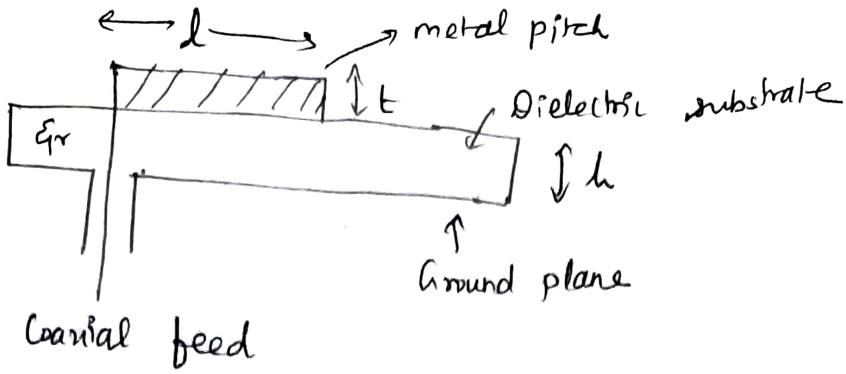 l
metal pitch
t
Dielectric substrate
εr
h
Ground plane
Coaxial feed